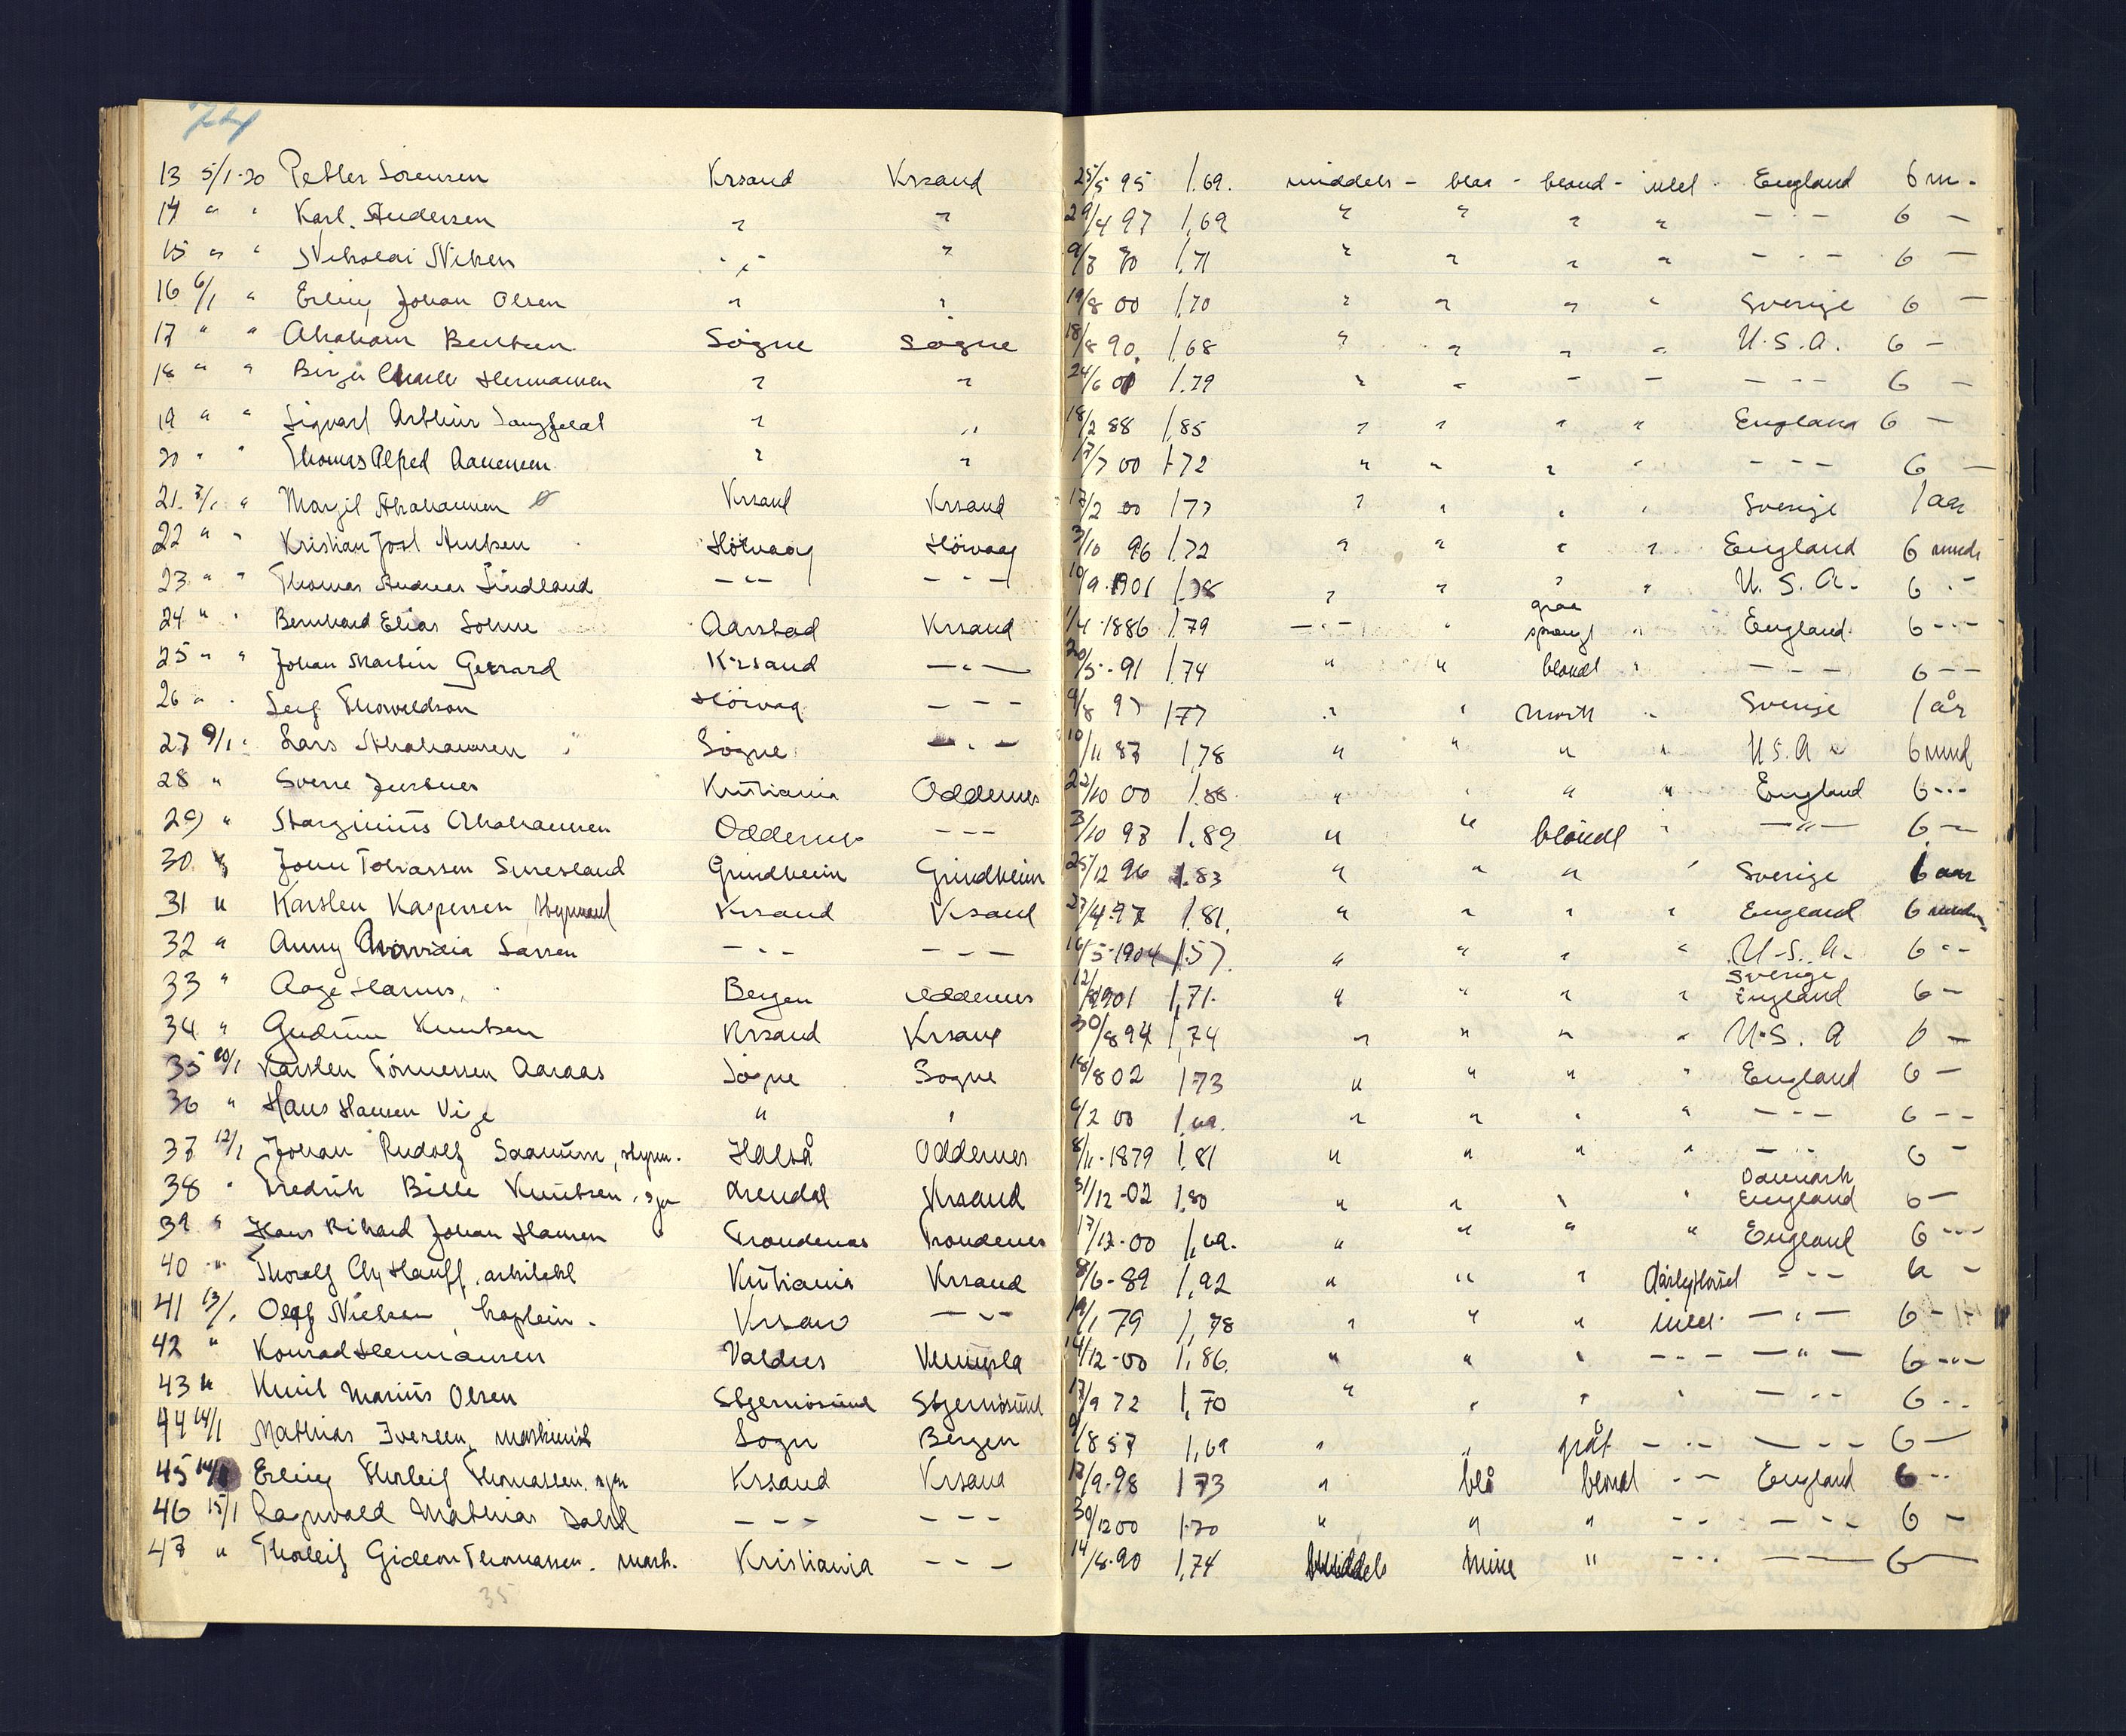 74
13 5/1-20 Petter Sørensen Krsand Krsand 25/5 95 1.69. middels - blaa - blond - intet - England 6 m.
14 " " Karl. Andersen " " 29/4 97 1,69 " " " " - - - 6 -
15 " " Nikolai Nilsen " " 9/8 1,71 " " " " - - - 6 -
16 6/1 " Erling Johan Olsen " " 19/8 00 1,70 " " " " Sverige 6 -
17 " " Abraham Bentsen Søgne Søgne 18/8 90. 1,68 " " " " U.S.A. 6 -
18 " " Birger Hermansen " " 24/6 01 1.79 " " - - - - - 6 -
19 " " Sigvart Arthur Langfeldt " " 18/2 88 1,85 " " " " England 6 -
20 " " Thomas Alfred Aanensen " " 17/7 00 1.72 " " " " - - - 6 -
21. 7/1 " Margit Abrahamsen Krsand Krsand 17/2 00 1,73 " " " " Sverige 1 aar
22 " " Kristian Knutsen Høivaag Høivaag 3/10 96 1.72 " " " " England 6 mnd
23 " " Thomas Andreas Lindland - " - - " - 10/9.1901 1.78 " " " " U.S.A. 6 " -
24 " " Bernhard Elias Aarstad Krsand 1/4-1886 1.79 - " - " graa sprengt " England 6 - - -
25 " " Johan Martin Gerrard Krsand - " - 20/5-91 1.74 " " blondt " - - - 6 - -
26 " " Leif Thorvaldson Høivaag - - - 9/8 97 1,77 " " mørkt " Sverige 1 år
27 9/1 " Lars Abrahamsen Søgne - " - 10/11 87 1,78 " " " " U.S.A " 6 mnd
28 " Sverre Kristiania Oddernes 22/10 00 1.88 " " " " England 6 - - -
29 " Abrahamsen Oddernes - - - 3/10 98 1.89 " " blondt " - " - 6 -
30 " John Tobiassen Grindheim Grindheim 25/12 96 1.83 " " " " Sverige 1 aar
31 " Karsten Kaspersen, styrmand Krsand Krsand 27/4.97 1.81. " " " " England 6 mndr
32 " Anny Larsen - - - - - 16/5-1904 1.57. " " " " U-S.A- 6 " -
33 " Aage Harms, Bergen Oddernes 12/8 1901 1,71. " " " " Sverige England 6 -
34 " Gudrun Knutsen Krsand Krsand 30/8 94 1,74 " " " " U.S.A 6 -
35 10/1 Karsten Tønnessen Aaraas Søgne Søgne 18/8 02 1,73 " " " " England 6 -
36 " Hans Hansen Vige " " 6/2 00 1,69. " " " " - - - 6 - -
37 12/1 Johan Rudolf Saanum, styrm. Halså Oddernes 8/11-1879 1,81 " " " " - - - 6 -
38 " Fredrik Bille Knutsen, sjm Arendal Krsand 31/12-02 1,80 " " " " Danmark England 6 -
39 " Hans Rihard Johan Hansen Trondenes Trondenes 17/12-00 1,69. " " " " England 6 - - -
40 " Thorolf Chr Hauff, arkitekt Kristiania Krsand 8/6-89 1,92 " " " - - - 6 -
41 13/1 Olaf Nielsen, kaptein. Krsand - " - 19/1 79 1,78 " " " intet. - " - 6 - -
42 " Konrad Hermansen Valdres Vennesla 14/12-00 1,86. " " " - - - - " - 6 - " -
43 " Knut Marius Olsen Stjernøsund Stjernøsund 17/9 72 1,70 " " " " - " - 6 - -
44 14/1 Mathias Iversen, maskinist Sogn Bergen 9/8 57 1,69 " " gråt - " - - - - 6 -
45 14/1 Erling Thorleif Thomassen. sjm Krsand Krsand 12/9-98 1,73 " blå blondt - " - England 6 - -
46 15/1 Ragnvald Mathias Dahl - - - - - - 30/12 00 1.70 " " " - - - - - - 6 -
47 " Thorleif Gideon Thomassen. mask. Kristiania - - - 14/8-90 1,74 Middels " - - - - - 6 -
35